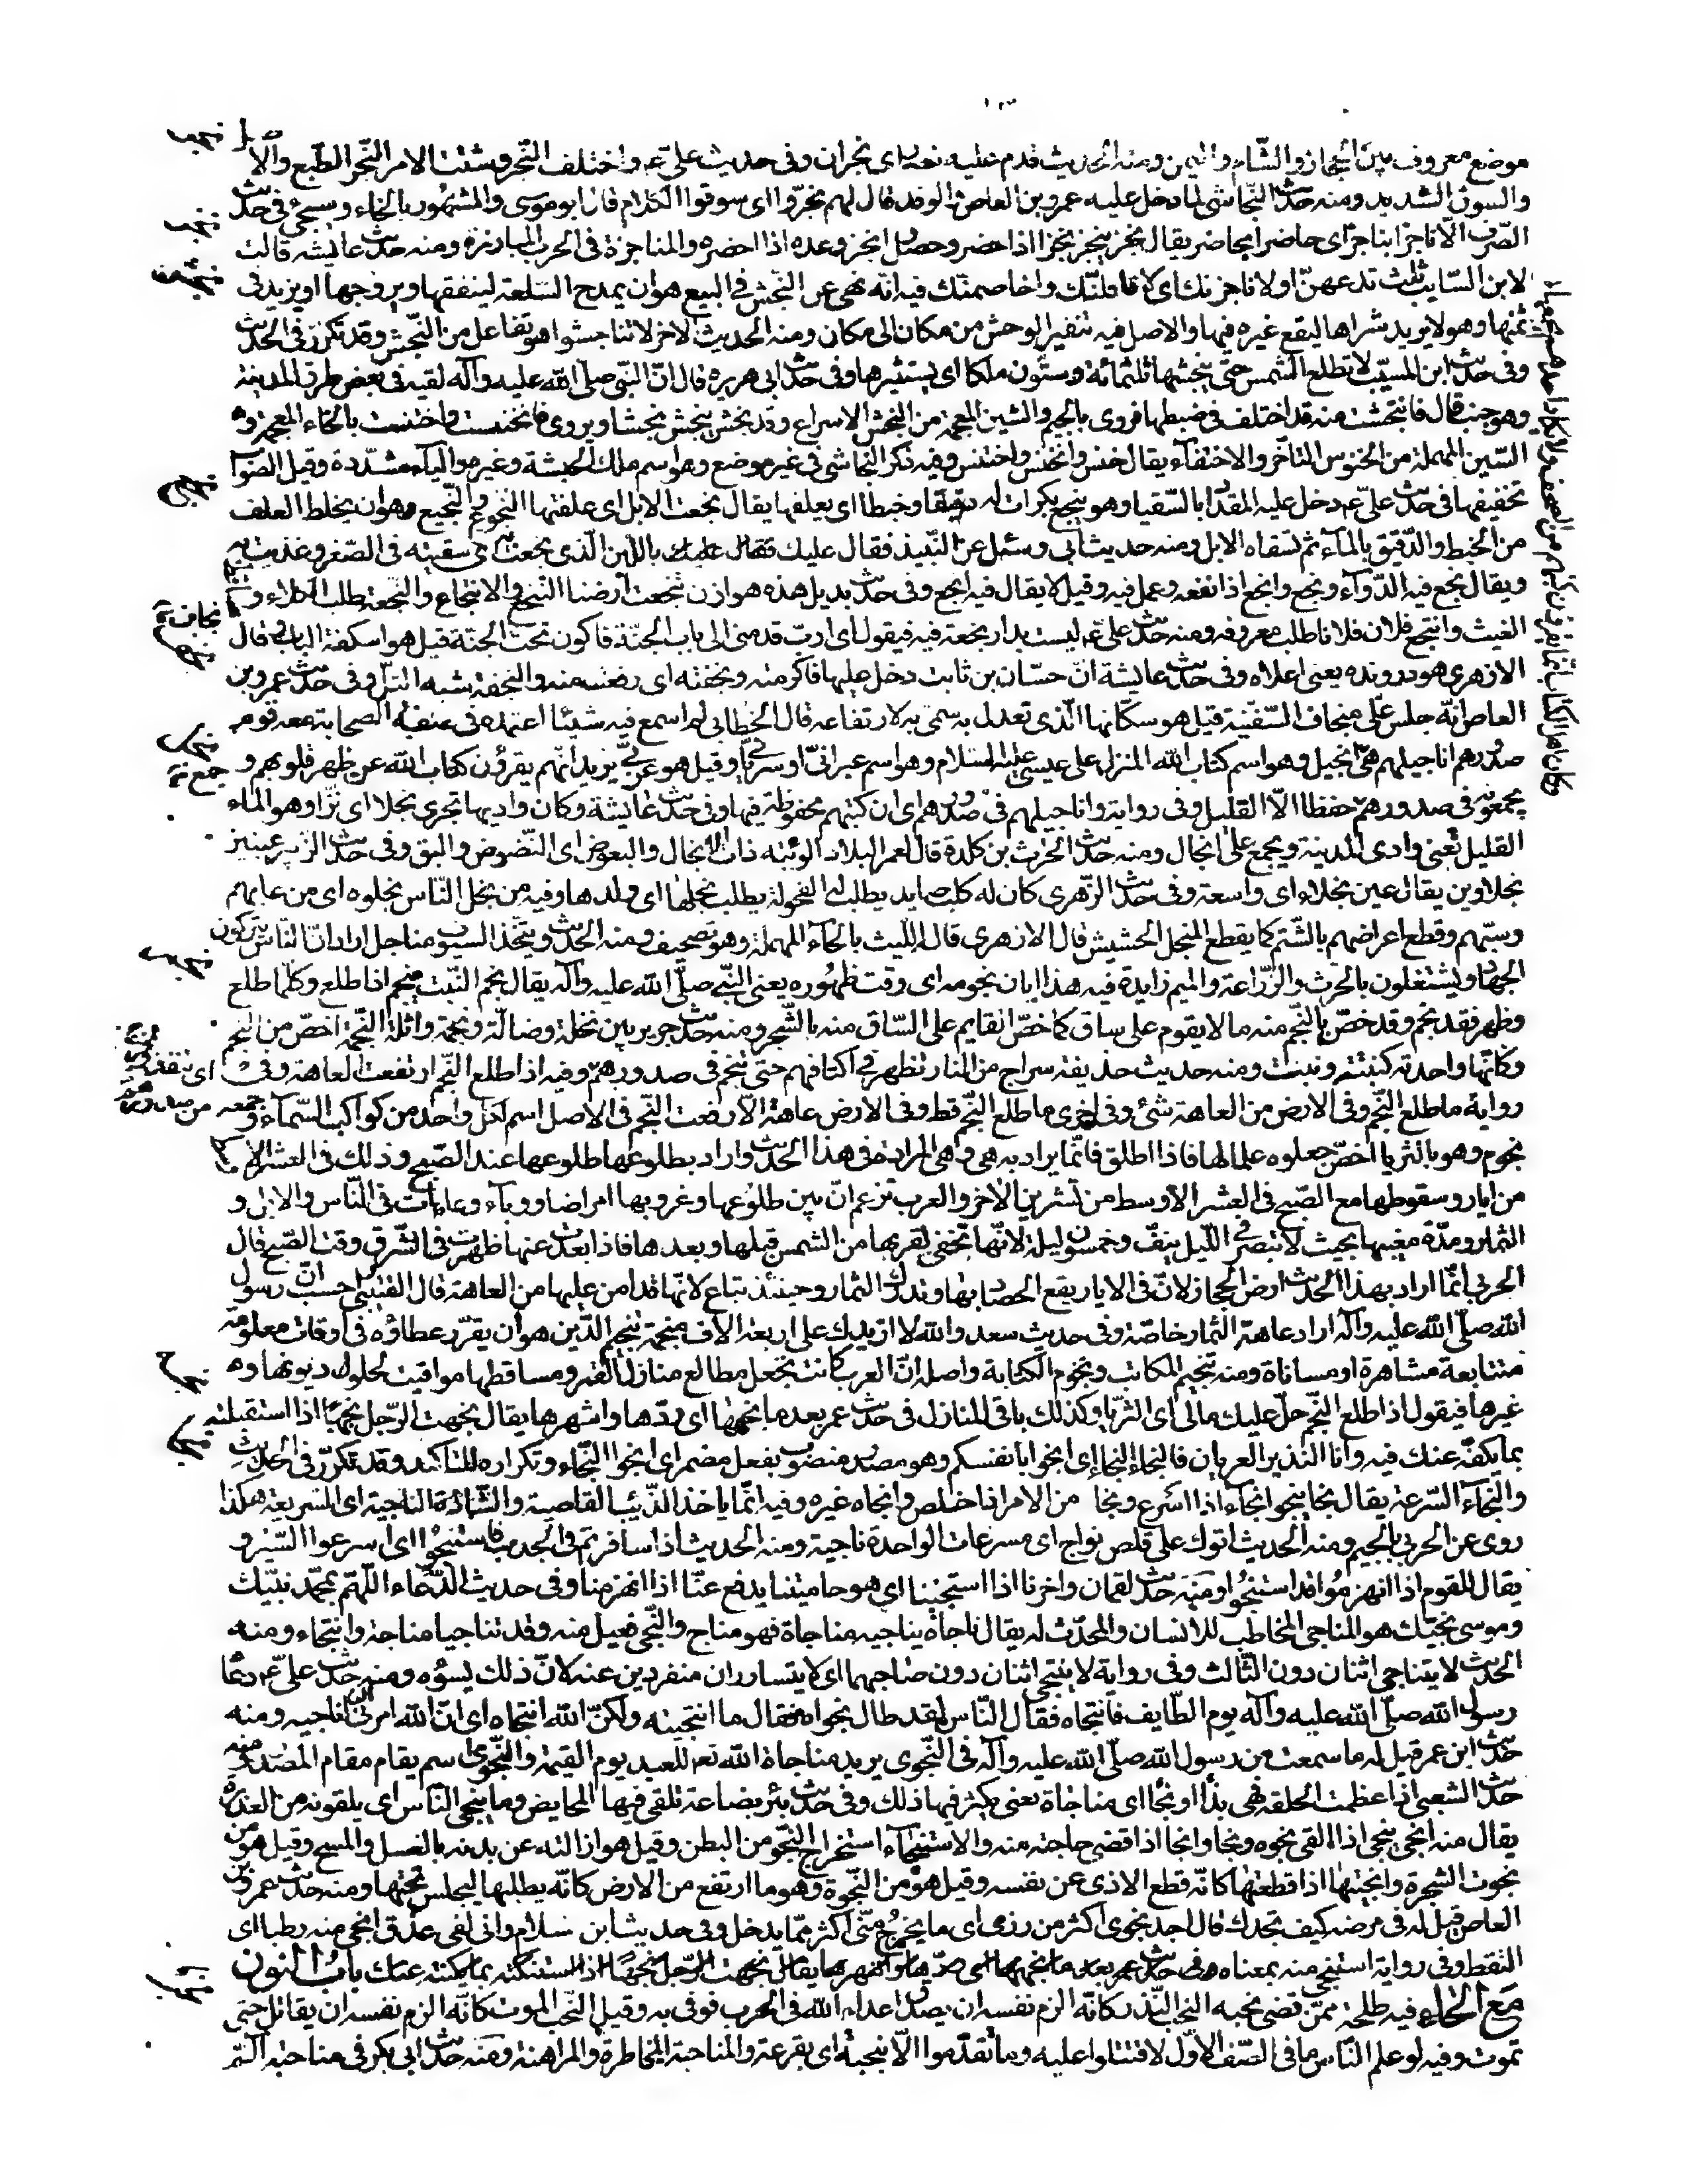 موضع معروف بين الحجاز والشام واليمن ومنه الحديث قدم عليه نصارى نجران وفى حديث علىّ ع واختلف النجر وتشتت الامر النجر الطبع والاصل
والسوق الشديد ومنه حديث النجاشى لما دخل عليه عمرو بن العاص والوفد قال لهم نجّروا اى سوقوا الكلام قال ابو موسى والمشهور بالخاء وسيجئ فى حديث
الصرف الّا ناجزا بناجز اى حاضرا بحاضر يقال نجز ينجز نجزا اذا حضر وحصل وانجز وعده اذا احضره والمناجزة فى الحرب المبارزة ومنه حديث عايشه قالت
لابن السايب ثلث تدعهنّ او لاناجزنك اى لاقاتلنّك واخاصمنّك فيه انه نهى عن النجش فى البيع هو ان يمدح السلعة لينفقها ويروجها او يزيد فى
ثمنها وهو لا يريد شراها ليقع غيره فيها والاصل فيه تنفير الوحش من مكان الى مكان ومنه الحديث الاخر لا تناجشوا هو تفاعل من النجش وقد تكرر فى الحديث
وفى حديث ابن المسيّب لا تطلع الشمس حتى ينجشها ثلثمائة وستون ملكا اى يستثيرها وفى حديث ابى هريره قال انّ النبى صلى الله عليه وآله لقيه فى بعض طرق المدينة
وهو جنب قال فانتجشت منه قد اختلف فى ضبطها فروى بالجيم والشين المعجمة من النجش الاسراع وقد نجش ينجش نجشا ويروى فانخنست واختنست بالخاء المعجمة و
السين المهملة من الخنوس التأخر والاختفاء يقال خنس وانخنس واختنس وفيه ذكر النجاشى فى غير موضع وهو اسم ملك الحبشة وغيره والياء مشدّدة وقيل الصواب
تخفيفها فى حديث علىّ ع دخل عليه المقداد بالسقيا وهو ينجع بكرات له دقيقا وخبطا اى يعلفها يقال نجعت الابل اى علفتها النجوع والنجيع وهو ان يخلط العلف
من الخبط والدقيق بالماء ثم تسقاه الابل ومنه حديث ابى وسئل عن النبيذ فقال عليك باللبن الذى نجعت به اى سقيته فى الصغر وغذيت به
ويقال نجع فيه الدواء ونجع وانجع اذا نفعه وعمل فيه وقيل لا يقال فيه انجع وفى حديث بديل هذه هوازن تنجعت ارضنا التنجع والانتجاع والنجعة طلب الكلاء و
الغيث وانتجع فلان فلانا طلب معروفه ومنه حديث علىّ ع ليست بدار نجعة فيه فيقول اى ربّ قدمنى الى باب الجنّة فاكون تحت نجاف الجنة قيل هو اسكفة الباب قال
الازهرى هو دروند يعنى اعلاه وفى حديث عايشة انّ حسّان بن ثابت دخل عليها فاكرمته ونجفته اى رفعت منه والنجفة شبه التل وفى حديث عمرو بن
العاص انّه جلس على منجاف السفينة قيل هو سكانها الذى تعدل به سمى به لارتفاعه قال الخطابى لم اسمع فيه شيئا اعتمده فى صفة الصحابة معه قوم
صدورهم اناجيلهم هى جمع انجيل وهو اسم كتاب الله المنزل على عيسى عليه السلام وهو اسم عبرانىّ او سريانىّ وقيل هو عربى يريد انهم يقرؤن كتاب الله عن ظهر قلوبهم و
يجمعونه فى صدورهم حفظا الّا القليل وفى رواية واناجيلهم فى صدورهم اى ان كتبهم محفوظة فيها وفى حديث عايشة وكان واديها تجرى نجلا اى نزّا وهو الماء
القليل تعنى وادى المدينة ويجمع على انجال ومنه حديث الحرث بن كلدة قال لعمر البلاد الوبئة ذات الانجال والبعوض اى النضوض والبق وفى حديث الزبير عينين
نجلاوين يقال عين نجلاء اى واسعة وفى حديث الزهرى كان له كلب صايد يطلب لها الفحولة يطلب نجلها اى ولدها وفيه من نجل الناس نجلوه اى من عابهم
وسبّهم وقطع اعراضهم بالشتم كما يقطع المنجل الحشيش قال الازهرى قاله الليث بالحاء المهملة وهو تصحيف ومنه الحديث ويتخذ السيوف مناجل اراد انّ الناس يتركون
الجهاد ويشتغلون بالحرث والزراعة والميم زايدة فيه هذا ابان نجومه اى وقت ظهوره يعنى النبى صلّى الله عليه وآله يقال نجم النبت ينجم اذا طلع وكلّ ما طلع
وظهر فقد نجم وقد خصّ بالنجم منه ما لا يقوم على ساق كما خصّ القايم على الساق منه بالشجر ومنه حديث جرير بين نخلة وضالة ونجمة واثلة النجمة اخصّ من النجم
وكانّها واحدته كنبتة ونبت ومنه حديث حذيفة سراج من النار تظهر فى اكتافهم حتى تنجم فى صدورهم وفيه اذا طلع النجم ارتفعت العاهة وفى
رواية ما طلع النجم وفى الارض من العاهة شئ وفى اخرى ما طلع النجم قط وفى الارض عاهة الّا رفعت النجم فى الاصل اسم لكل واحد من كواكب السماء وجمعه
نجوم وهو بالثريا اخصّ جعلوه علما لها فاذا اطلق فانّما يراد به هى وهى المرادة فى هذا الحديث واراد بطلوعها طلوعها عند الصبح وذلك فى العشر الاوسط
من ايار وسقوطها مع الصبح فى العشر الاوسط من تشرين الاخر والعرب تزعم انّ بين طلوعها وغروبها امراضا ووباء وعاهات فى الناس والابل و
الثمار ومدّة مغيبها بحيث لا تبصر فى الليل نيف وخمسون ليلة لانّها تخفى بقربها من الشمس قبلها وبعدها فاذا بعدت عنها ظهرت فى الشرق وقت الصبح قال
الحربى انّما اراد بهذا الحديث ارض الحجاز لانّ فى الايار يقع الحصاد بها وتدرك الثمار وحينئذ تباع لانّها قد امن عليها من العاهة قال القتيبى احسب انّ رسول
الله صلّى الله عليه وآله اراد عاهة الثمار خاصّة وفى حديث سعد والله لا ازيدك على اربعة الاف منجمة تنجيم الدّين هو ان يقرّر عطاؤه فى اوقات معلومة
متتابعة مشاهرة او مساناة ومنه تنجيم المكاتب ونجوم الكتابة واصله انّ العرب كانت تجعل مطالع منازل القمر ومساقطها مواقيت لحلول ديونها و
غيرها فيقول اذا طلع النجم حلّ عليك مالى اى الثريا وكذلك باقى المنازل فى حديث عمر بعد ما نجهها اى ردّها وانتهرها يقال نجهت الرجل نجها اذا استقبلته
بما تكفه عنك فيه وانا النذير العريان فالنجاء النجاء اى انجوا بانفسكم وهو مصدر منصوب بفعل مضمر اى انجوا النجاء وتكراره للتأكيد وقد تكرر فى الحديث
والنجاء السرعة يقال نجا ينجو انجاء اذا اسرع ونجا من الامر اذا خلص وانجاه غيره وفيه انّما ياخذ الذئب القاصية والشاذة الناجية اى السريعة هكذا
روى عن الحربى بالجيم ومنه الحديث اتوك على قلص نواج اى مسرعات الواحدة ناجية ومنه الحديث اذا سافرتم فى الجدب فاستنجوا اى اسرعوا السير و
يقال للقوم اذا انهزموا قد استنجوا ومنه حديث لقمان واخرنا اذا استنجينا اى هو حاميتنا يدفع عنّا اذا انهزمنا وفى حديث الدعاء اللهمّ بمحمد نبيّك
وموسى نجيّك هو المناجى المخاطب للانسان والمحدّث له يقال ناجاه يناجيه مناجاة فهو مناج والنجى فعيل منه وقد تناجيا مناجاة وانتجاء ومنه
الحديث لا يتناجى اثنان دون الثالث وفى رواية لا ينتجى اثنان دون صاحبهما اى لا يتساروان منفردين عنه لانّ ذلك يسؤه ومنه حديث علىّ ع دعا
رسول الله صلّى الله عليه وآله يوم الطايف فانتجاه فقال الناس لقد طال نجواه فقال ما انتجيته ولكنّ الله انتجاه اى انّ الله امرنى ان اناجيه ومنه
حديث ابن عمر قيل له ما سمعت من رسول الله صلّى الله عليه وآله فى النجوى يريد مناجاة الله تعا للعبد يوم القيمة والنجوى اسم يقام مقام المصدر ومنه
حديث الشعبى اذا عظمت الحلقة فهى بذاء او نجاء اى مناجاة يعنى يكثر فيها ذلك وفى حديث بئر بضاعة تلقى فيها المحايض وما ينجى الناس اى يلقونه من العذرة
يقال منه انجى ينجى اذا القى نجوه ونجا وانجا اذا قضى حاجته منه والاستنجاء استخراج النجو من البطن وقيل هو ازالته عن بدنه بالغسل والمسح وقيل هو من
نجوت الشجرة وانجيتها اذا قطعتها كانّه قطع الاذى عن نفسه وقيل هو من النجوة وهو ما ارتفع من الارض كانّه يطلبها ليجلس تحتها ومنه حديث عمرو بن
العاص قيل له فى مرضه كيف تجدك قال اجد نجوى اكثر من رزءى اى ما يخرج منّى اكثر ممّا يدخل وفى حديث ابن سلام وانى لفى عذق انجى منه رطبا اى
التقط وفى رواية استنجى منه بمعناه وفى حديث عمر بعد ما نجهها اى ردّها وانتهرها يقال نجهت الرجل نجها اذا استنكته بما يكته عنك باب النون
مع الحاء فيه طلحة ممّن قضى نحبه النحب النذر كانّه الزم نفسه ان يصدق اعداء الله فى الحرب فوفى به وقيل النحب الموت كانّه الزم نفسه ان يقاتل حتى
تموت وفيه لو علم الناس ما فى الصف الاوّل لاقتتلوا عليه وما تقدّموا الّا بنحبة اى بقرعة والمناحبة المخاطرة والمراهنة ومنه حديث ابى بكر فى مناحبة الم